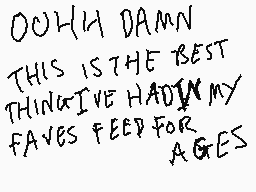 OOHH DAMN
THIS IS THE BEST
THING I'VE HAD IN MY
FAVES FEED FOR
AGES